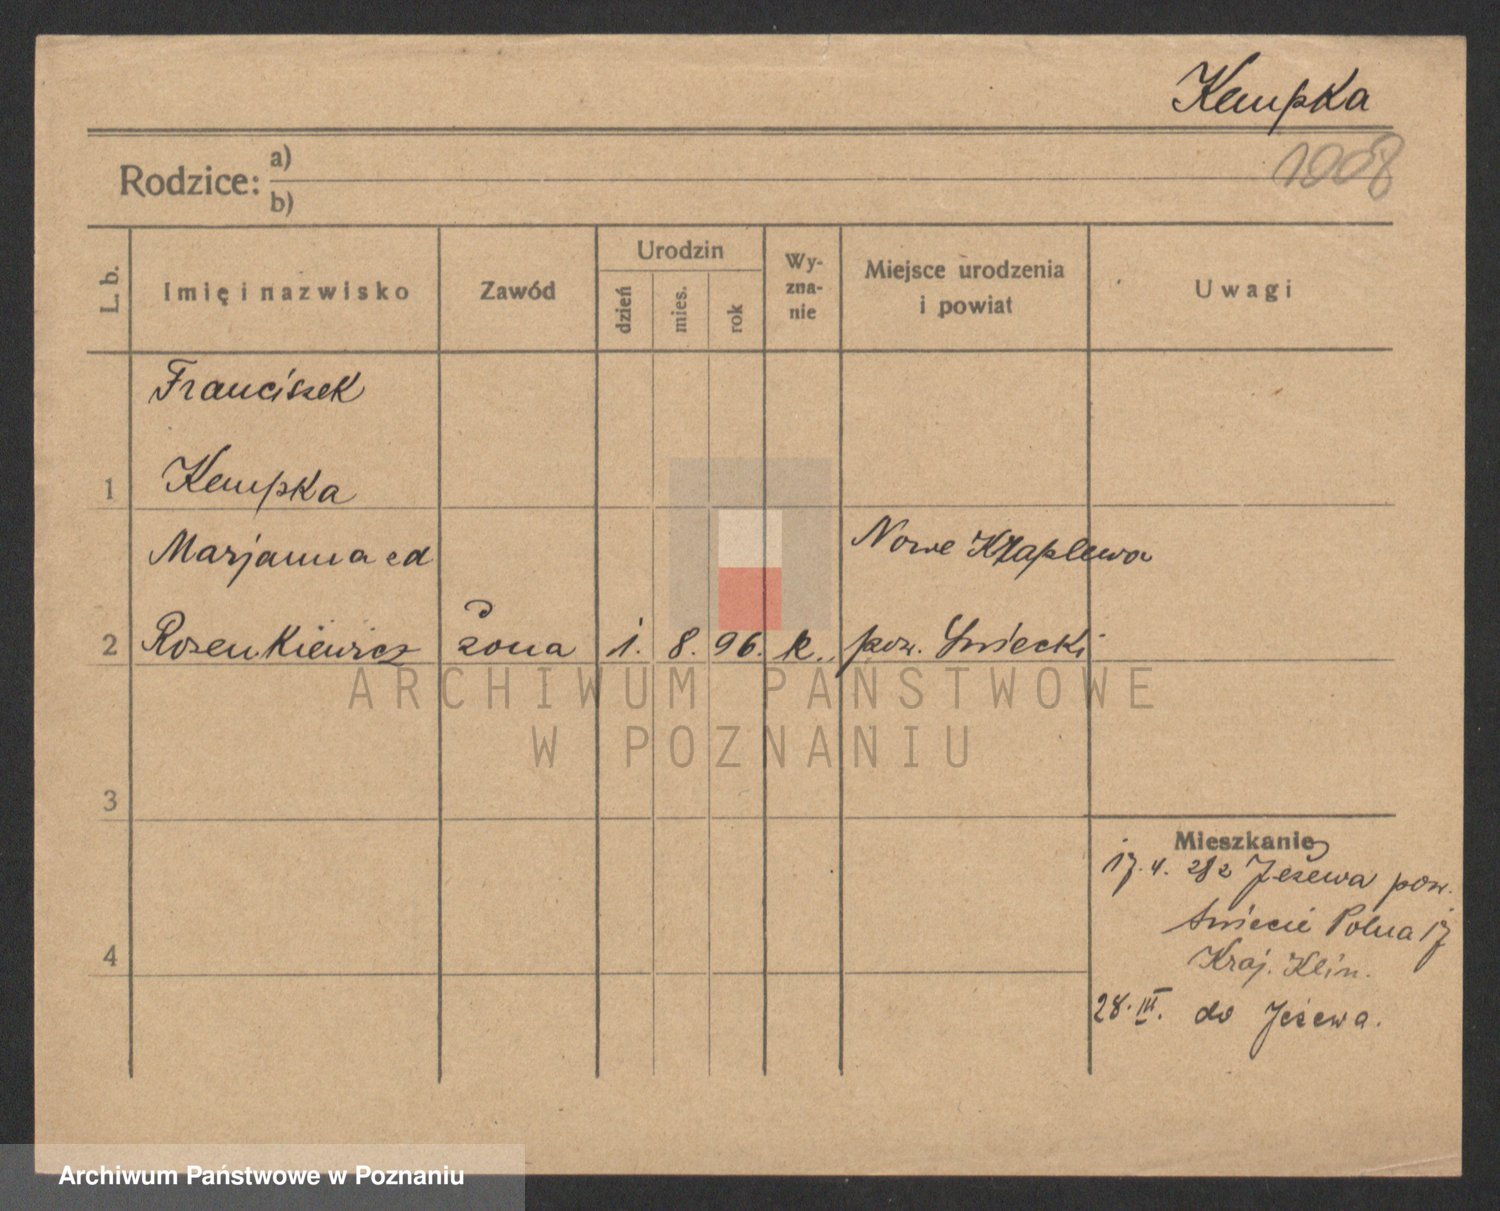 Kempka
1008
Rodzice: a)
b)
L. b. Imię i nazwisko Zawód Urodzin dzień mies. rok Wy-zna-nie Miejsce urodzenia i powiat Uwagi
Franciszek
1 Kempka
Marjanna Nowe
2 Rosenkiewicz żona 1. 8. 96. k. pow. Świecki
3
4
Mieszkanie
17. 4. 28 z Jeżewa pow.
Świecie Polna 17
Kraj. Klin.
28. III. do Jeżewa.
ARCHIWUM PAŃSTWOWE
W POZNANIU
Archiwum Państwowe w Poznaniu